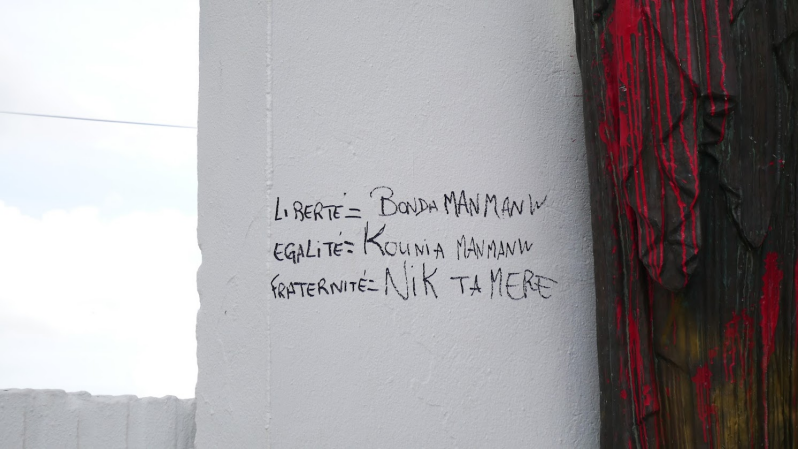 LIBERTÉ = BONDA MANMANW
EGALITÉ = KOUNIA MANMANW
FRATERNITÉ = NIK TA MERE